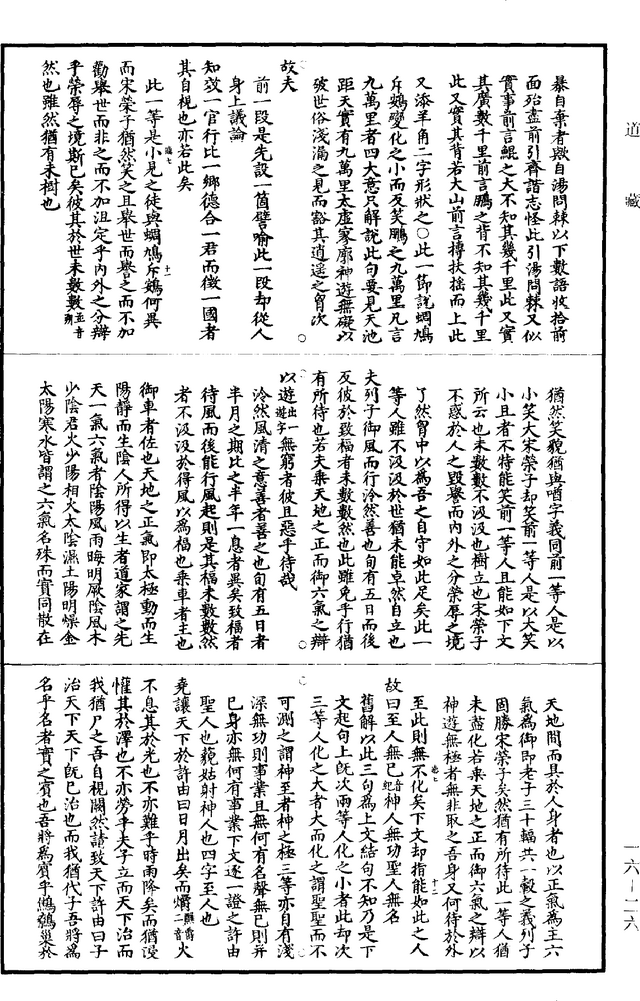 道藏
暴自棄者歟自湯問棘以下數語收拾前
面殆盡前引齊諧志怪此引湯問棘又似
實事前言鯤之大不知其幾千里此又實
其廣數千里前言鵬之背不知其幾千里
此又實其背若大山前言摶扶搖而上此
又添羊角二字形狀之○此一節說蜩鳩
斥鷃變化之小而反笑鵬之九萬里凡言
九萬里者四大意只解說此句要見天池
距天實有九萬里太虛寥廓神遊無礙以
破世俗淺漏之見而豁其逍遙之胷次
故夫
前一段是先設一箇譬喻此一段却從人
身上議論
知效一官行比一鄉德合一君而徵一國者
其自視也亦若此矣
此一等是小見之徒與蜩鳩斥鷃何異
而宋榮子猶然笑之且舉世而譽之而不加
勸舉世而非之而不加沮定乎內外之分辯
乎榮辱之境斯已矣彼其於世未數數音朔
然也雖然猶有未樹也
猶然笑貌猶與嘻字義同前一等人是以
小笑大宋榮子却笑前一等人是以大笑
小且者不特能笑前一等人且能如下文
所云也未數數不汲汲也樹立也宋榮子
不惑於人之毀譽而內外之分榮辱之境
了然胷中以為吾之自守如此足矣此一
等人雖不汲汲於世猶未能卓然自立也
夫列子御風而行泠然善也旬有五日而後
反彼於致福者未數數然也此雖免乎行猶
有所待也若夫乘天地之正而御六氣之辯
以遊出一遊字無窮者彼且惡乎待哉
泠然風清之意善者善之也旬有五日者
半月之期比之半年一息者異矣致福者
待風而後能行風起則是其福未數數然
者不汲汲於得風以為福也乘車者主也
御車者佐也天地之正氣即太極動而生
陽靜而生陰人所得以生者道家謂之先
天一氣六氣者陰陽風雨晦明厥陰風木
少陰君火少陽相火太陰濕土陽明燥金
太陽寒水皆謂之六氣名殊而實同散在
天地間而具於人身者也以正氣為主六
氣為御即老子三十輻共一轂之義列子
固勝宋榮子矣然猶有所待此一等人猶
未盡化若乘天地之正而御六氣之辯以
神遊無極者無非取之吾身又何待於外
至此則無不化矣下文却指能如此之人
故曰至人無己音紀神人無功聖人無名
舊解以此三句為上文結句不知乃是下
文起句上既次兩等人化之小者此却次
三等人化之大者大而化之謂聖聖而不
可測之謂神至者神之極三等亦自有淺
深無功則事業且無何有名聲無己則并
己身亦無何有事業下文逐一證之許由
聖人也藐姑射神人也四字至人也
堯讓天下於許由曰日月出矣而爝火
不息其於光也不亦難乎時雨降矣而猶浸
灌其於澤也不亦勞乎夫子立而天下治而
我猶尸之吾自視闕然請致天下許由曰子
治天下天下既已治也而我猶代子吾將為
名乎名者實之賓也吾將為賓乎鷦鷯巢於
一六—二六